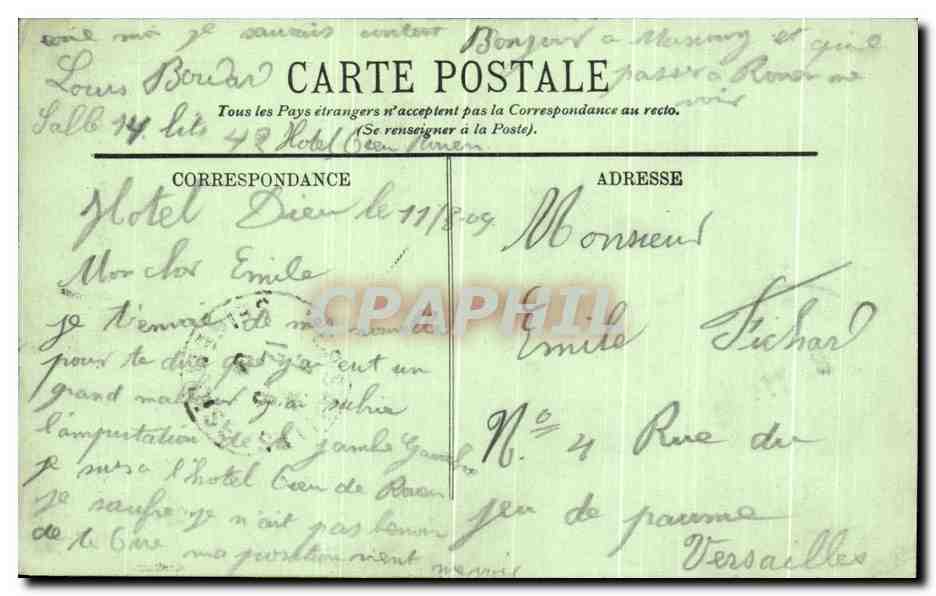 moi je saurais content Bonjour a et qu'il
Louis Boudard CARTE POSTALE passer a Rouen me
voir
Tous les Pays étrangers n'acceptent pas la Correspondance au recto.
Salle 14 lits 42 Hotel Dieu Rouen
(Se renseigner à la Poste).
CORRESPONDANCE
Hotel Dieu le 11/8-09
Mon cher Emile
je t'envoie de mes
pour te dire que j'ai eut un
grand malheur j'ai subie
l'amputation de la jambe Gauche
je suis a l'hotel Dieu de Rouen
je saufre je n'ait pas besoin
de te dire ma position vient
me voir
ADRESSE
Monsieur
Emile Fichard
No 4 Rue du
jeu de paume
Versailles
CPAPHIL